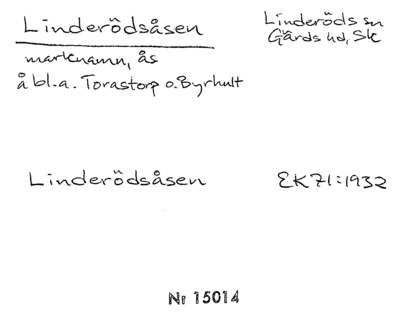 Linderödsåsen
Linderöds sn
Gärds hd, Sk
marknamn, ås
å bl.a. Torastorp o. Byrhult
Linderödsåsen
EK71:1932
Nr 15014